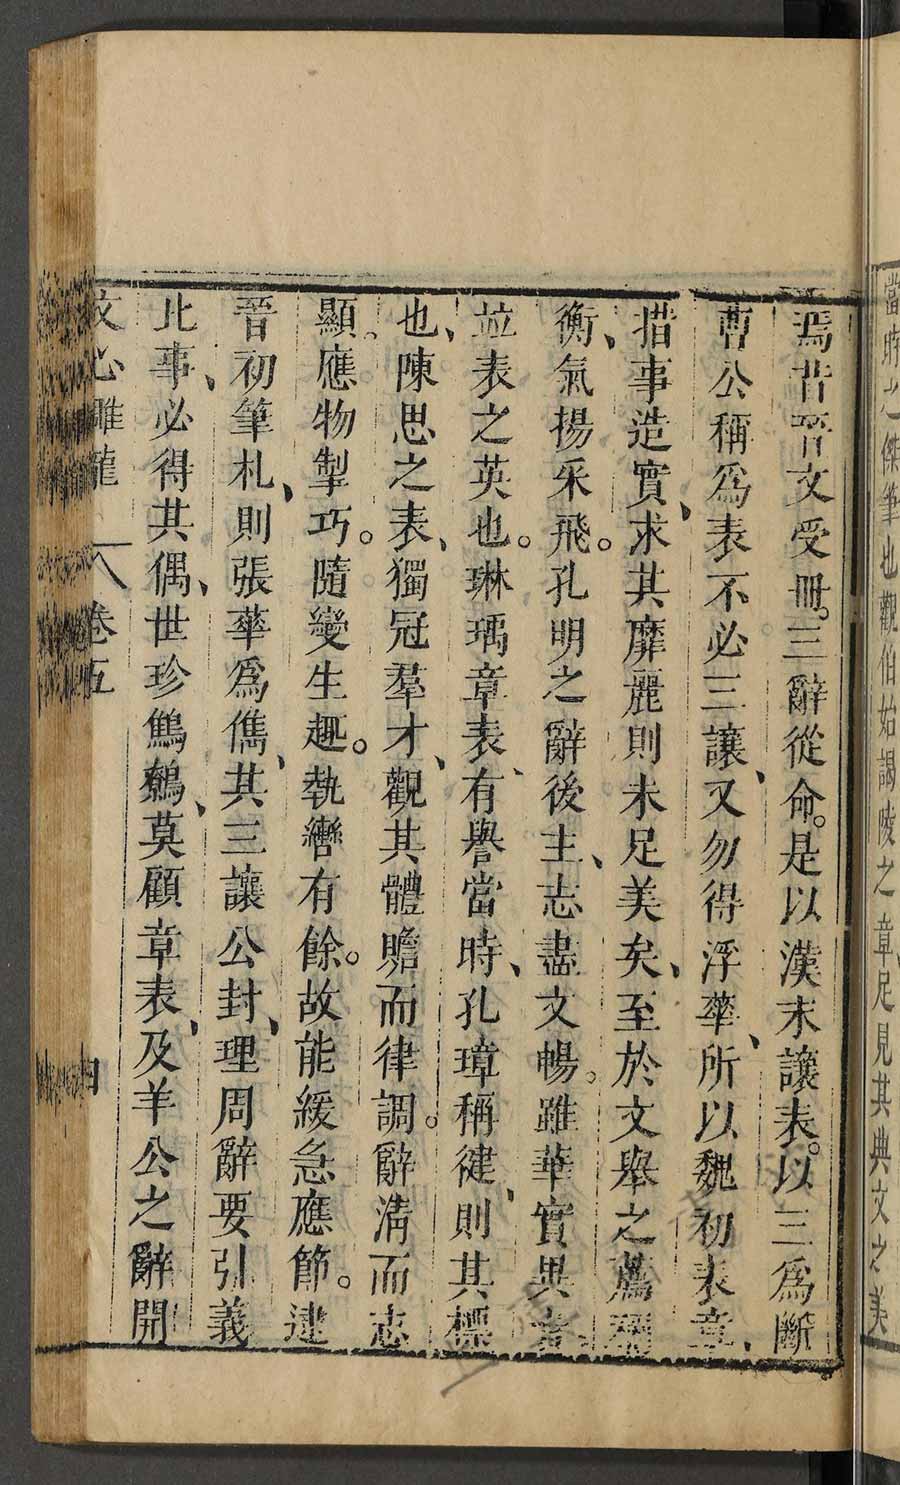 當時之傑筆也觀伯始謁陵之章足見其典文之美
焉昔晉文受冊。三辭從命。是以漢末讓表。以三為斷
曹公稱為表不必三讓、又勿得浮華、所以魏初表章、
措事造實、求其靡麗則未足美矣、至於文舉之薦禰
衡、氣揚采飛。孔明之辭後主、志盡文暢。雖華實異旨、
並表之英也。琳瑀章表、有譽當時、孔璋稱健、則其標
也、陳思之表、獨冠羣才、觀其體贍而律調。辭清而志
顯。應物掣巧。隨變生趣。執轡有餘。故能緩急應節。逮
晉初筆札、則張華為儁、其三讓公封、理周辭要引義
比事、必得其偶、世珍鷦鷯、莫顧章表、及羊公之辭開
文心雕龍 卷五 四